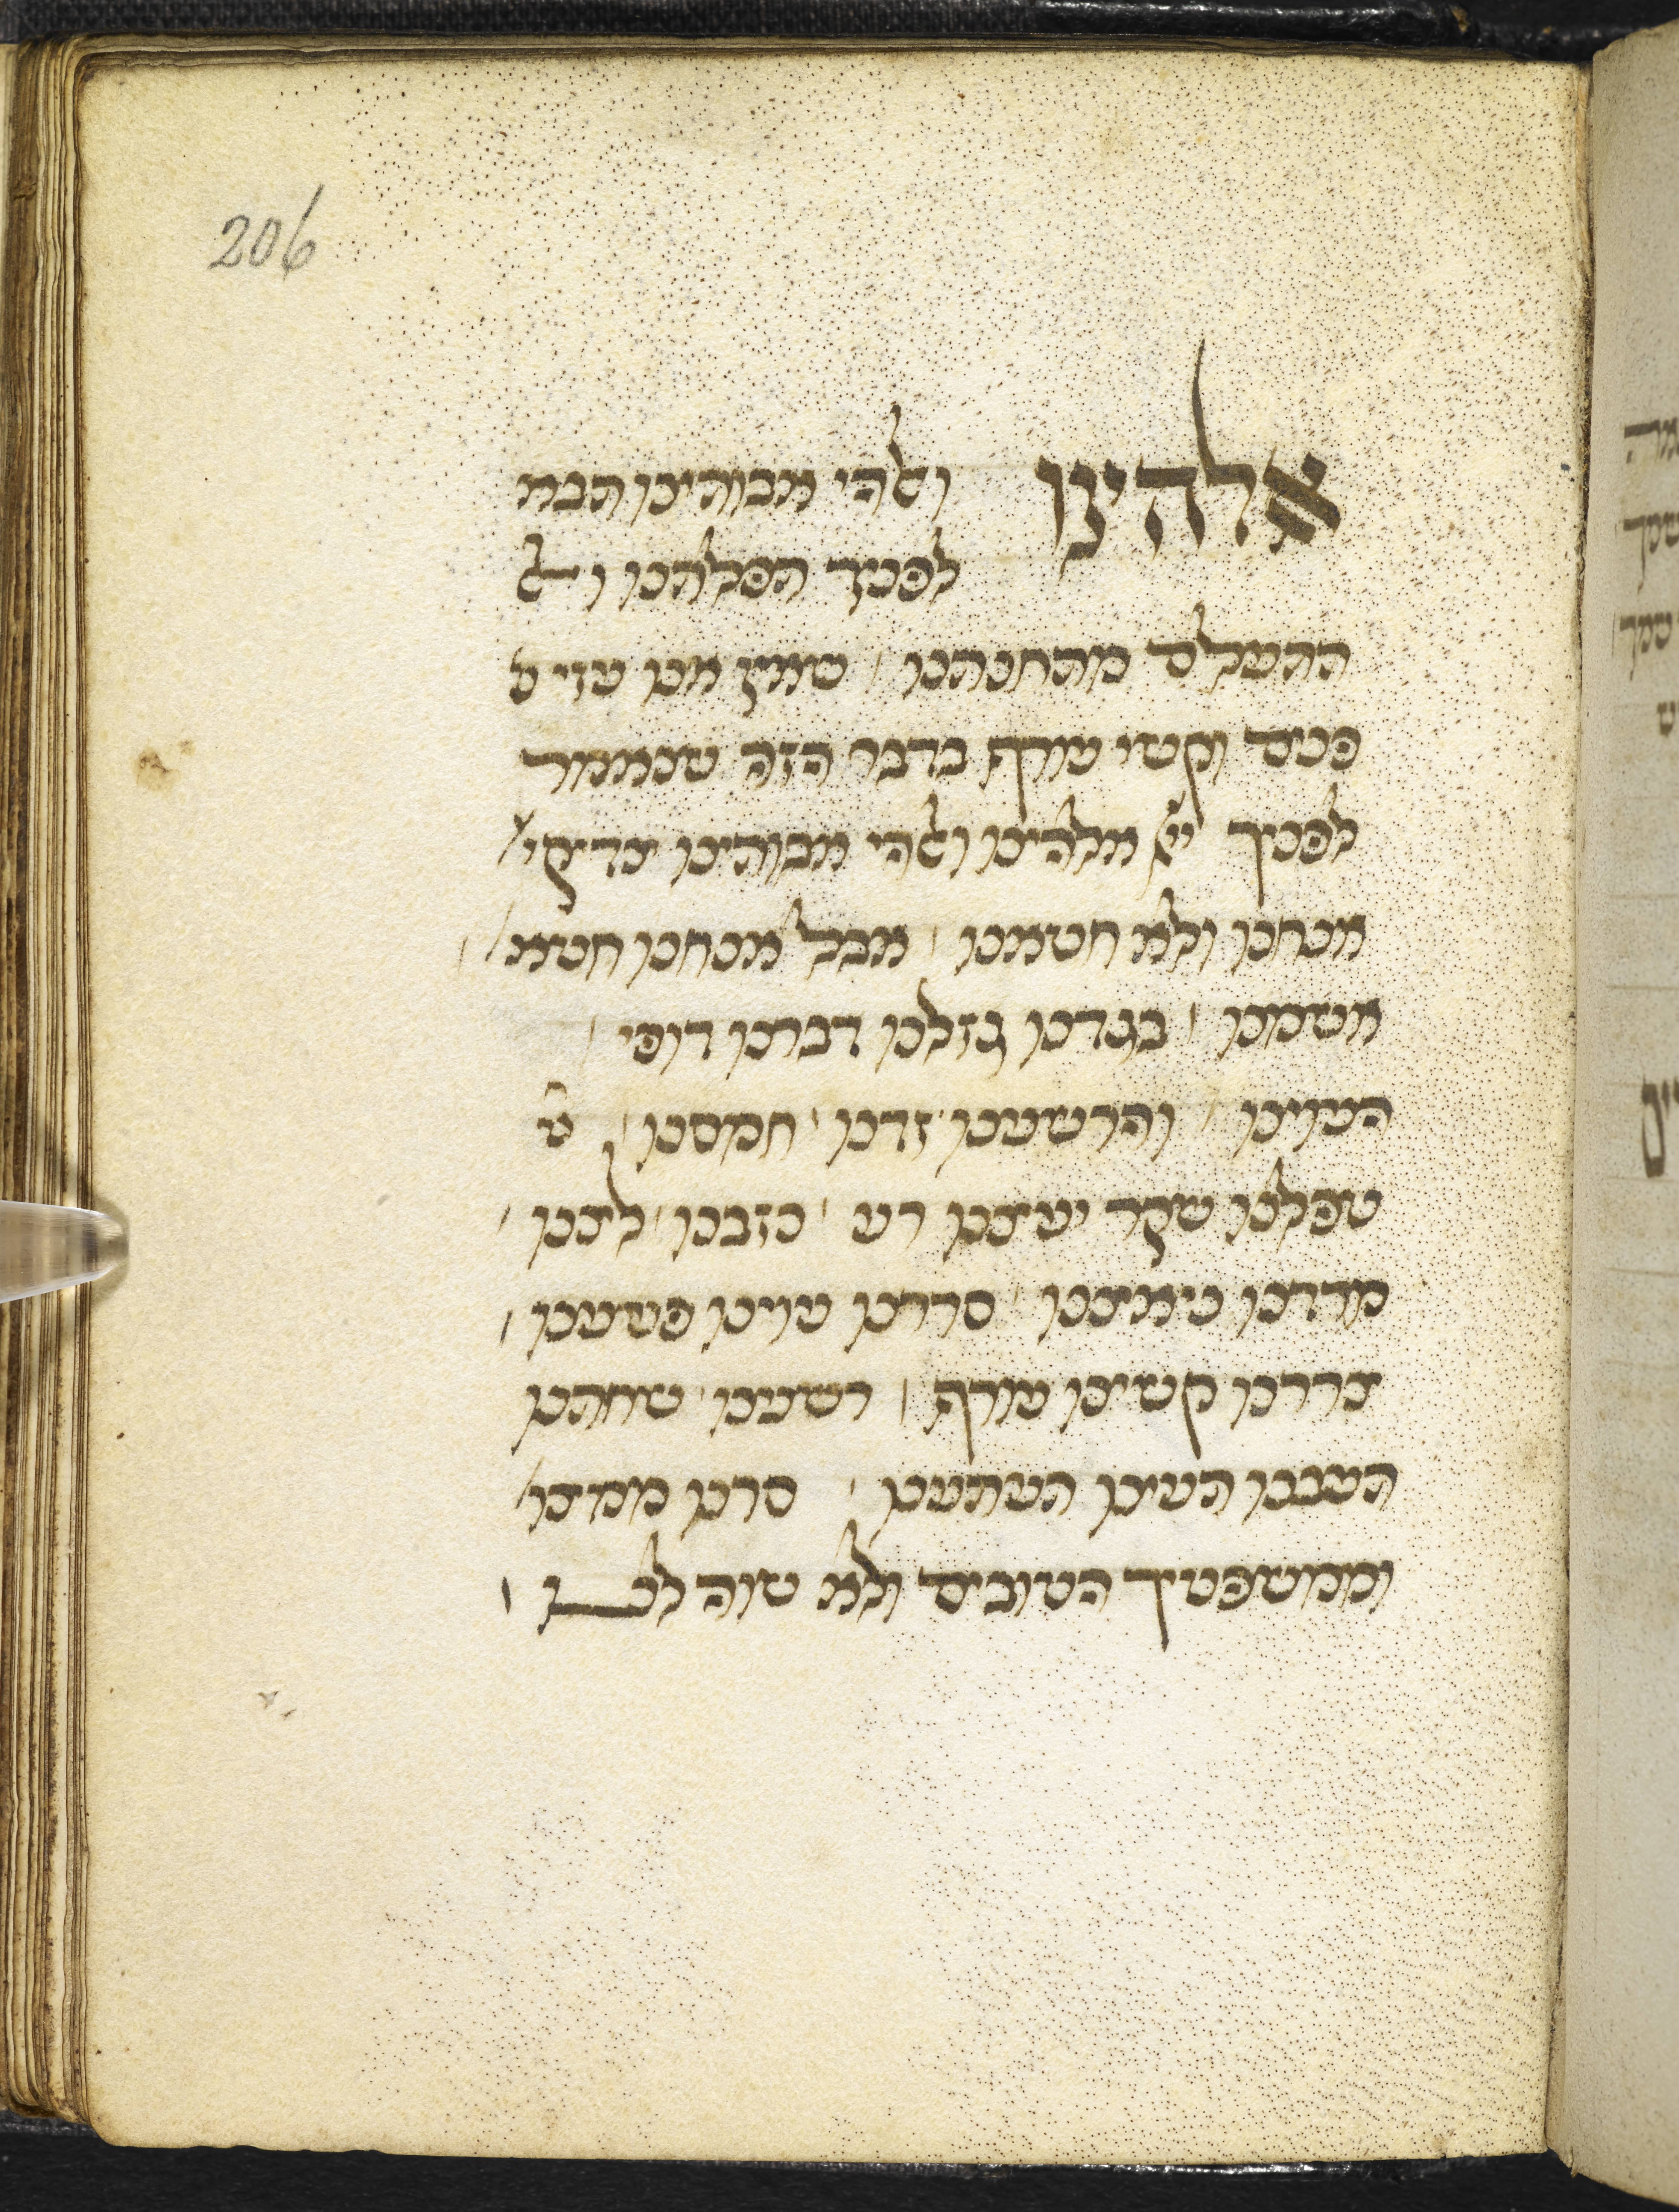 206
אלהינו ואלהי אבותינו תבא
לפניך תפלתינו ואל
תתעלם מתחנתנו שאין אנו עזי פ
פנים וקשי עורף כדבר הזה שנאמר
לפניך יי אלהינו ואלהי אבותינו צדיקי
אנחנו ולא חטאנו אבל אנחנו חטא
אשמנו בגדנו גזלנו דברנו דופי
העוינו והרשענו זדנו חמסנו ט
טפלנו שקר יעצנו רע כזבנו לצנו
מרדנו ניאצנו סררנו עוינו פשענו
צררנו קשינו עורף רשענו שחתנו
תעבנו תעינו תעתענו סרנו ממצו
וממשפטיך הטובים ולא שוה לנו